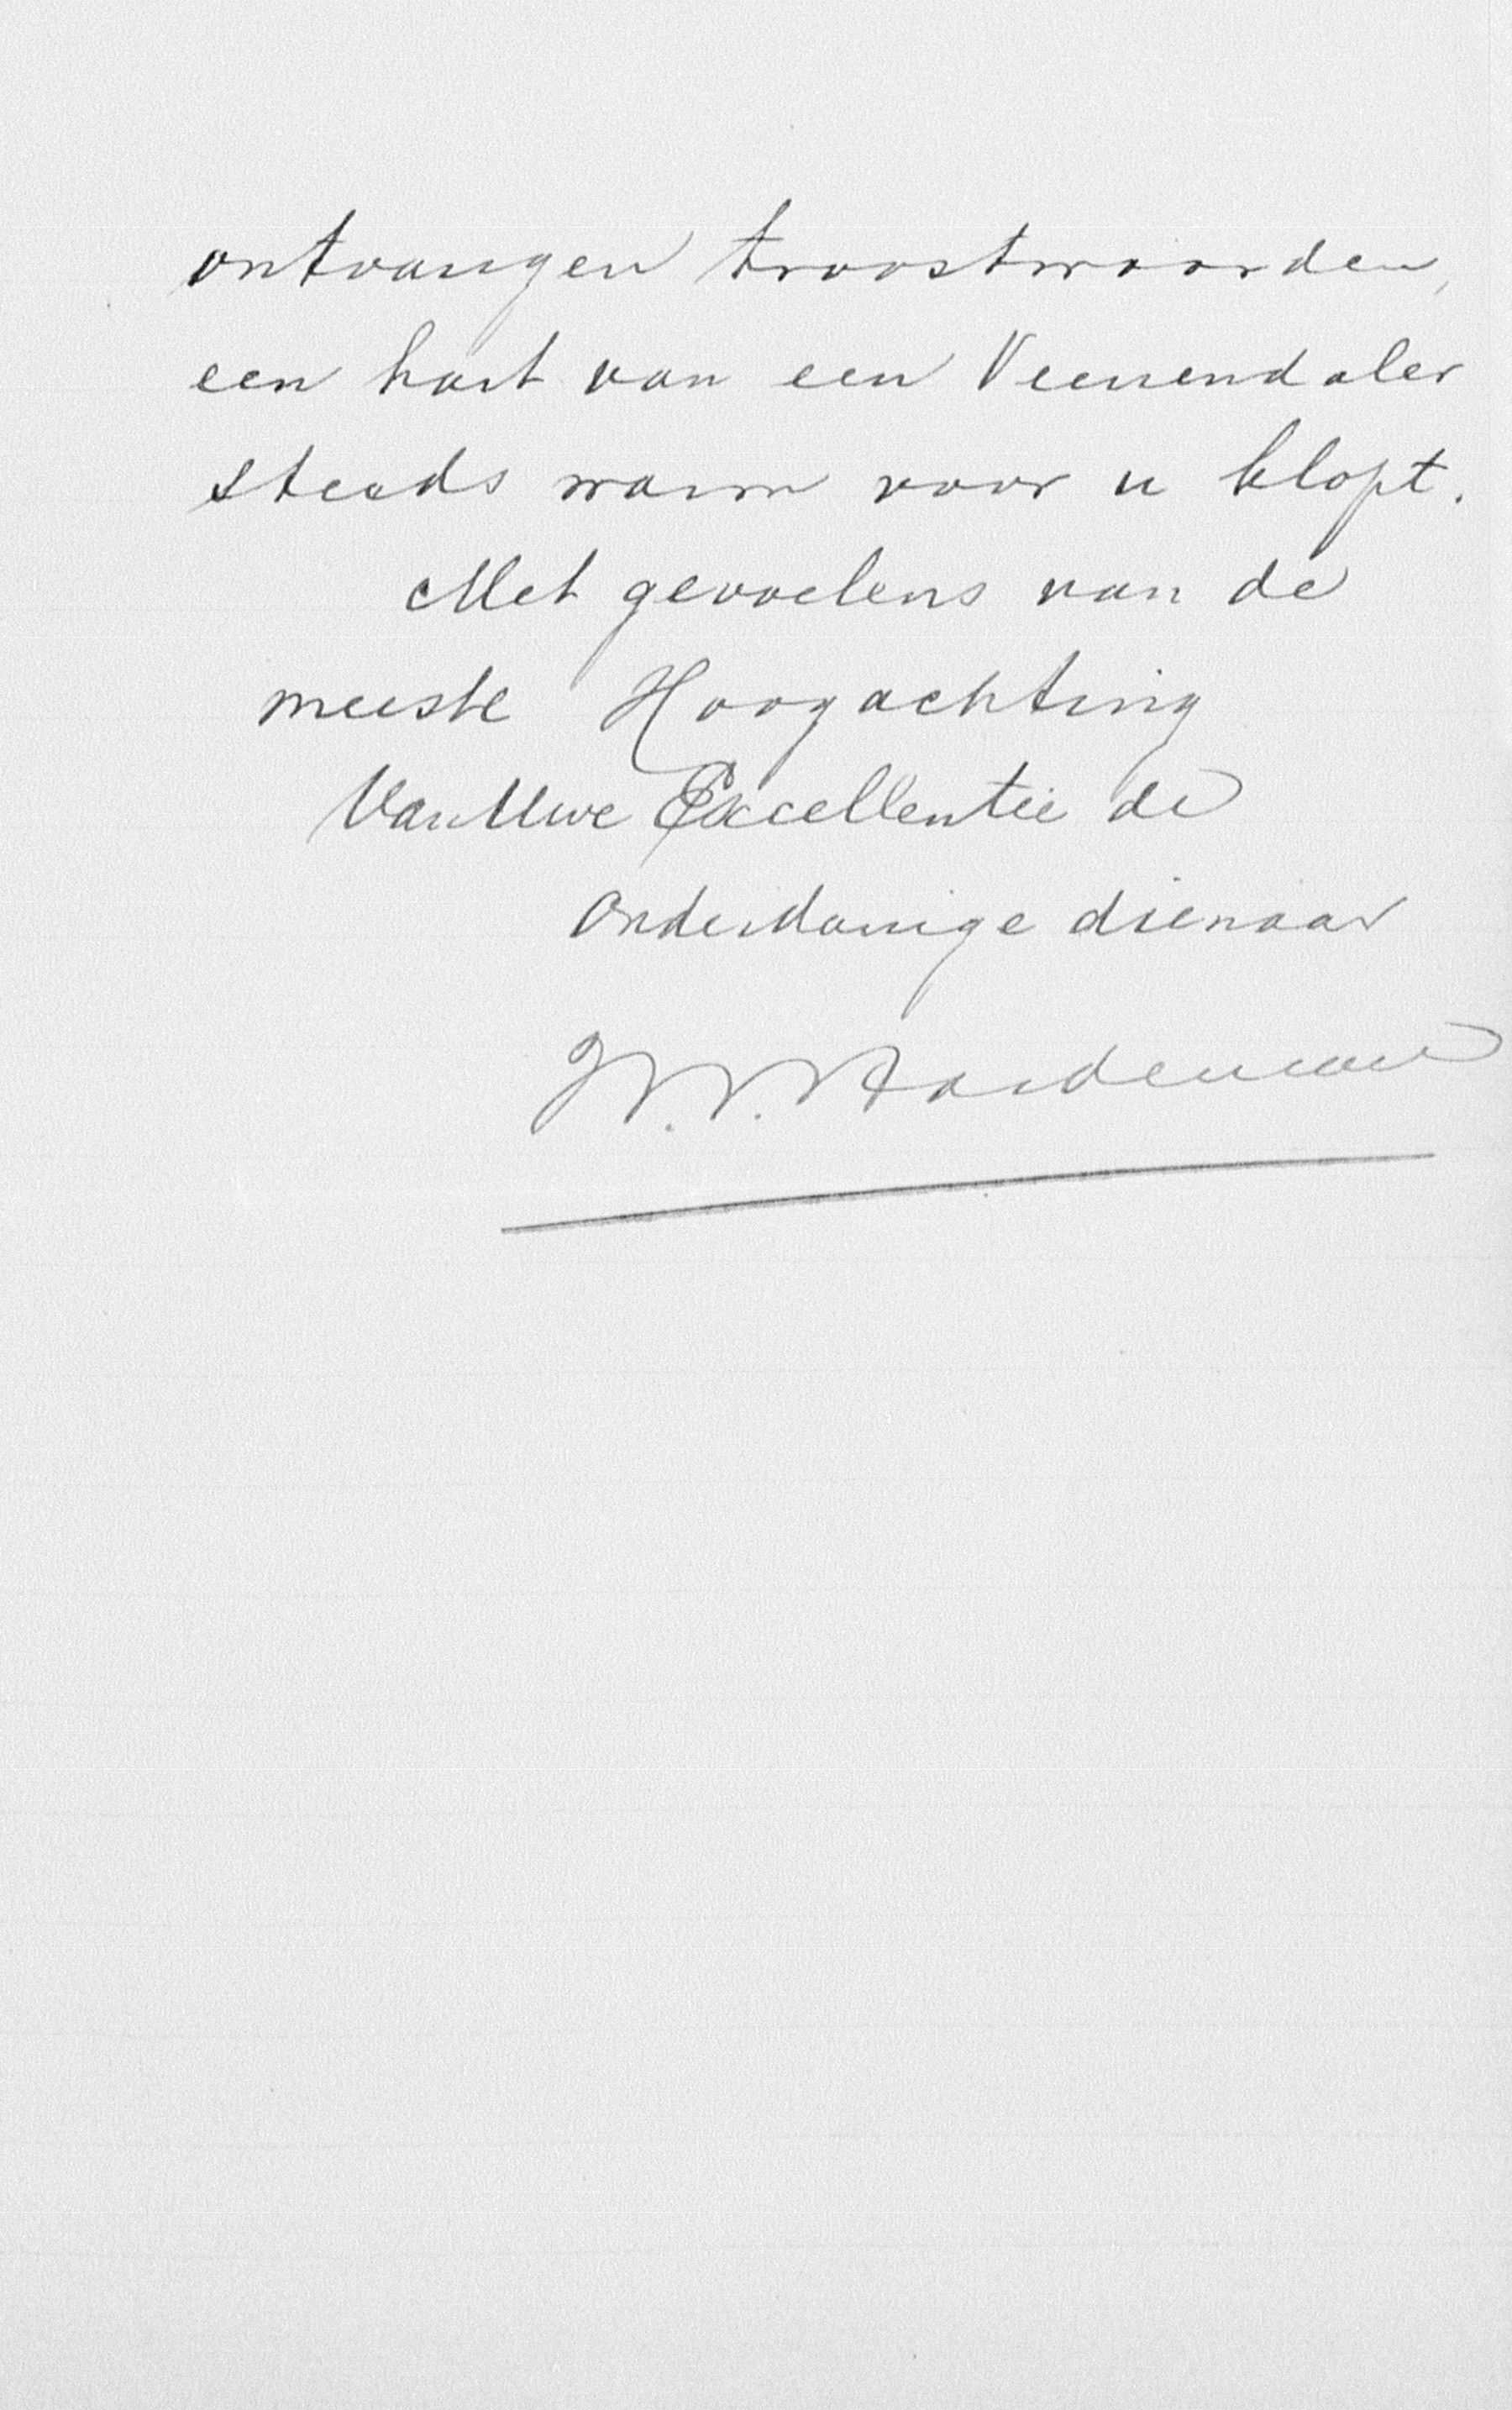 ontvangen troostwoorden,
een hart van een Veenendaler
steeds warm voor u klopt.
Met gevoelens van de
meeste Hoogachting
Van Uwe Excellentie de
Onderdanige dienaar